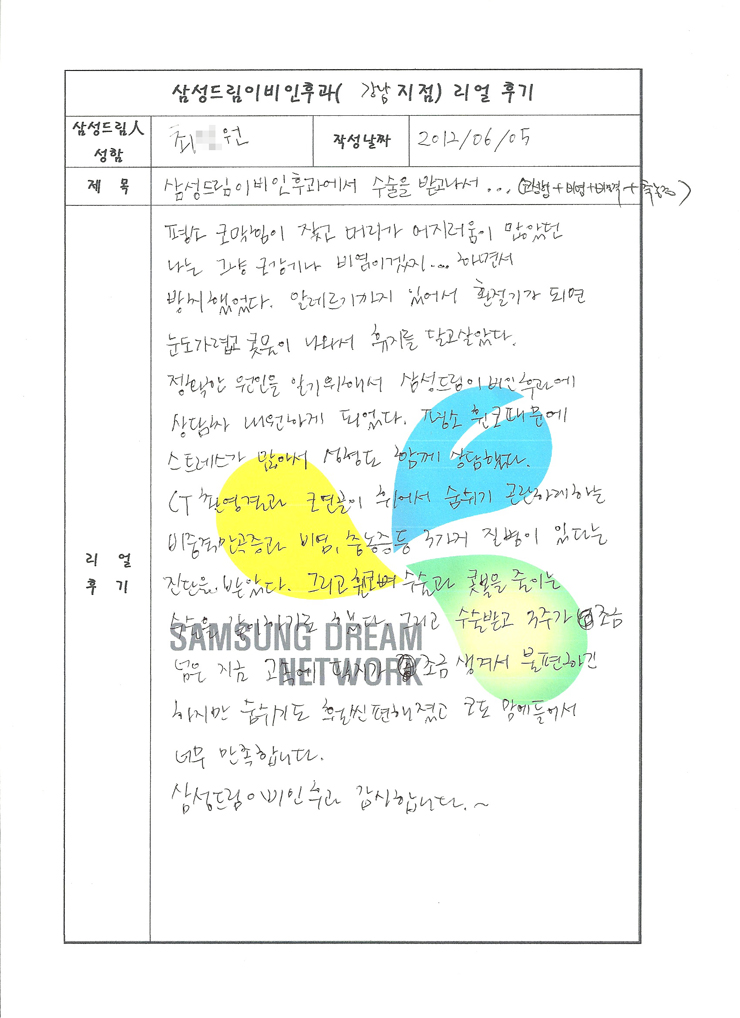 삼성드림이비인후과( 강남 지점) 리얼 후기
삼성드림人 성함
최 원
작성날짜
2012/06/05
제 목
삼성드림이비인후과에서 수술을 받고나서... (코성형+비염+비중격+축농증)
리 얼 후 기
평소 코막힘이 잦고 머리가 어지러움이 많았던
나는 그냥 코감기나 비염이겠지... 하면서
방치했었다. 알레르기까지 있어서 환절기가 되면
눈도가렵고 콧물이 나와서 휴지를 달고살았다.
정확한 원인을 알기위해서 삼성드림이비인후과에
상담차 내원하게 되었다. 평소 휜코때문에
스트레스가 많아서 성형도 함께 상담했다.
CT 촬영결과 코연골이 휘어서 숨쉬기 곤란하게하는
비중격만곡증과 비염, 축농증등 3가지 질병이 있다는
진단을 받았다. 그리고 휜코 수술과 콧볼을 줄이는
수술을 같이하기로 했다. 그리고 수술받고 3주가 조금
넘은 지금 코속에 딱지가 조금 생겨서 불편하긴
하지만 숨쉬기도 훨씬편해졌고 코도 맘에들어서
너무 만족합니다.
삼성드림이비인후과 감사합니다.~
SAMSUNG DREAM
NETWORK